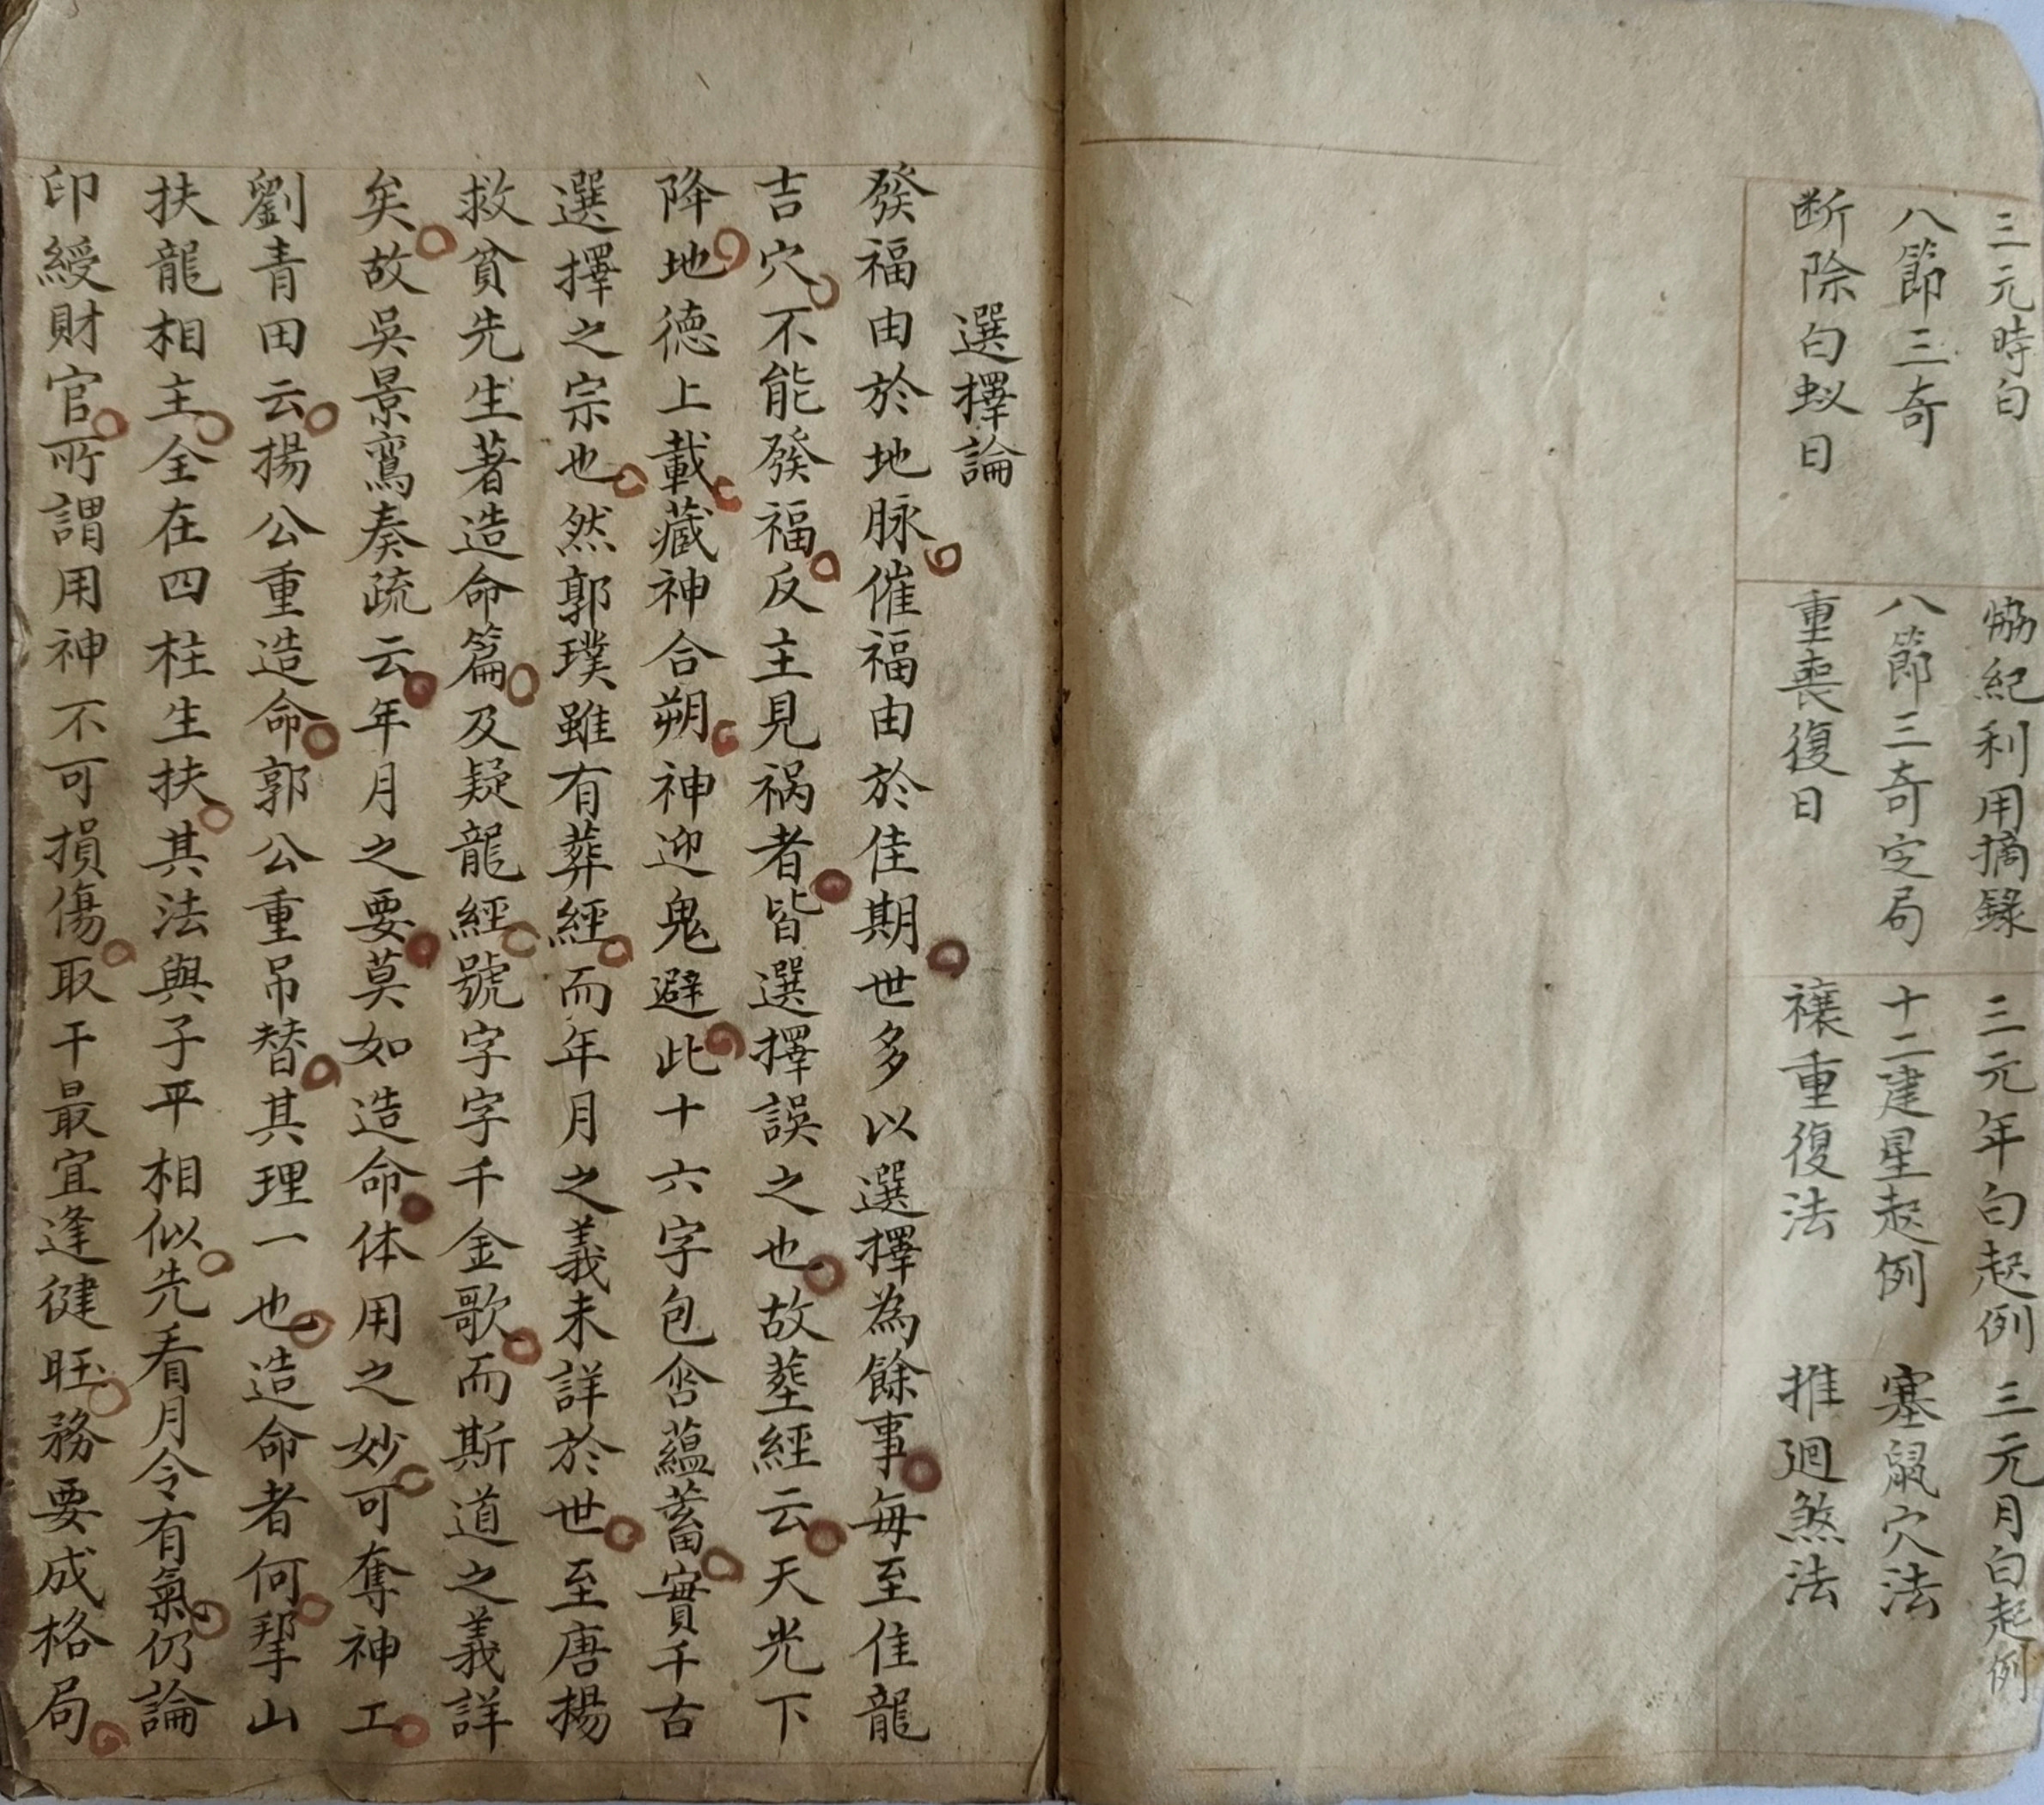 三元時白 恊紀利用摘錄 三元年白起例 三元月白起例
八節三奇 八節三奇定局 十二建星起例 塞鼠穴法
断除白蚁日 重喪復日 禳重復法 推廻煞法
選擇論
發福由於地脉催福由於佳期世多以選擇為餘事每至佳龍
吉穴不能發福反主見祸者皆選擇誤之也故塟經云天光下
降地德上載藏神合朔神迎鬼避此十六字包含蘊蓄實千古
選擇之宗也然郭璞雖有葬經而年月之義未詳於世至唐揚
救貧先生著造命篇及疑龍經號字字千金歌而斯道之義詳
矣故吳景鸞奏疏云年月之要莫如造命体用之妙可奪神工
劉青田云揚公重造命郭公重吊替其理一也造命者何挐山
扶龍相主全在四柱生扶其法與子平相似先看月令有氣仍論
印綬財官所謂用神不可損傷取干最宜逢健旺務要成格局